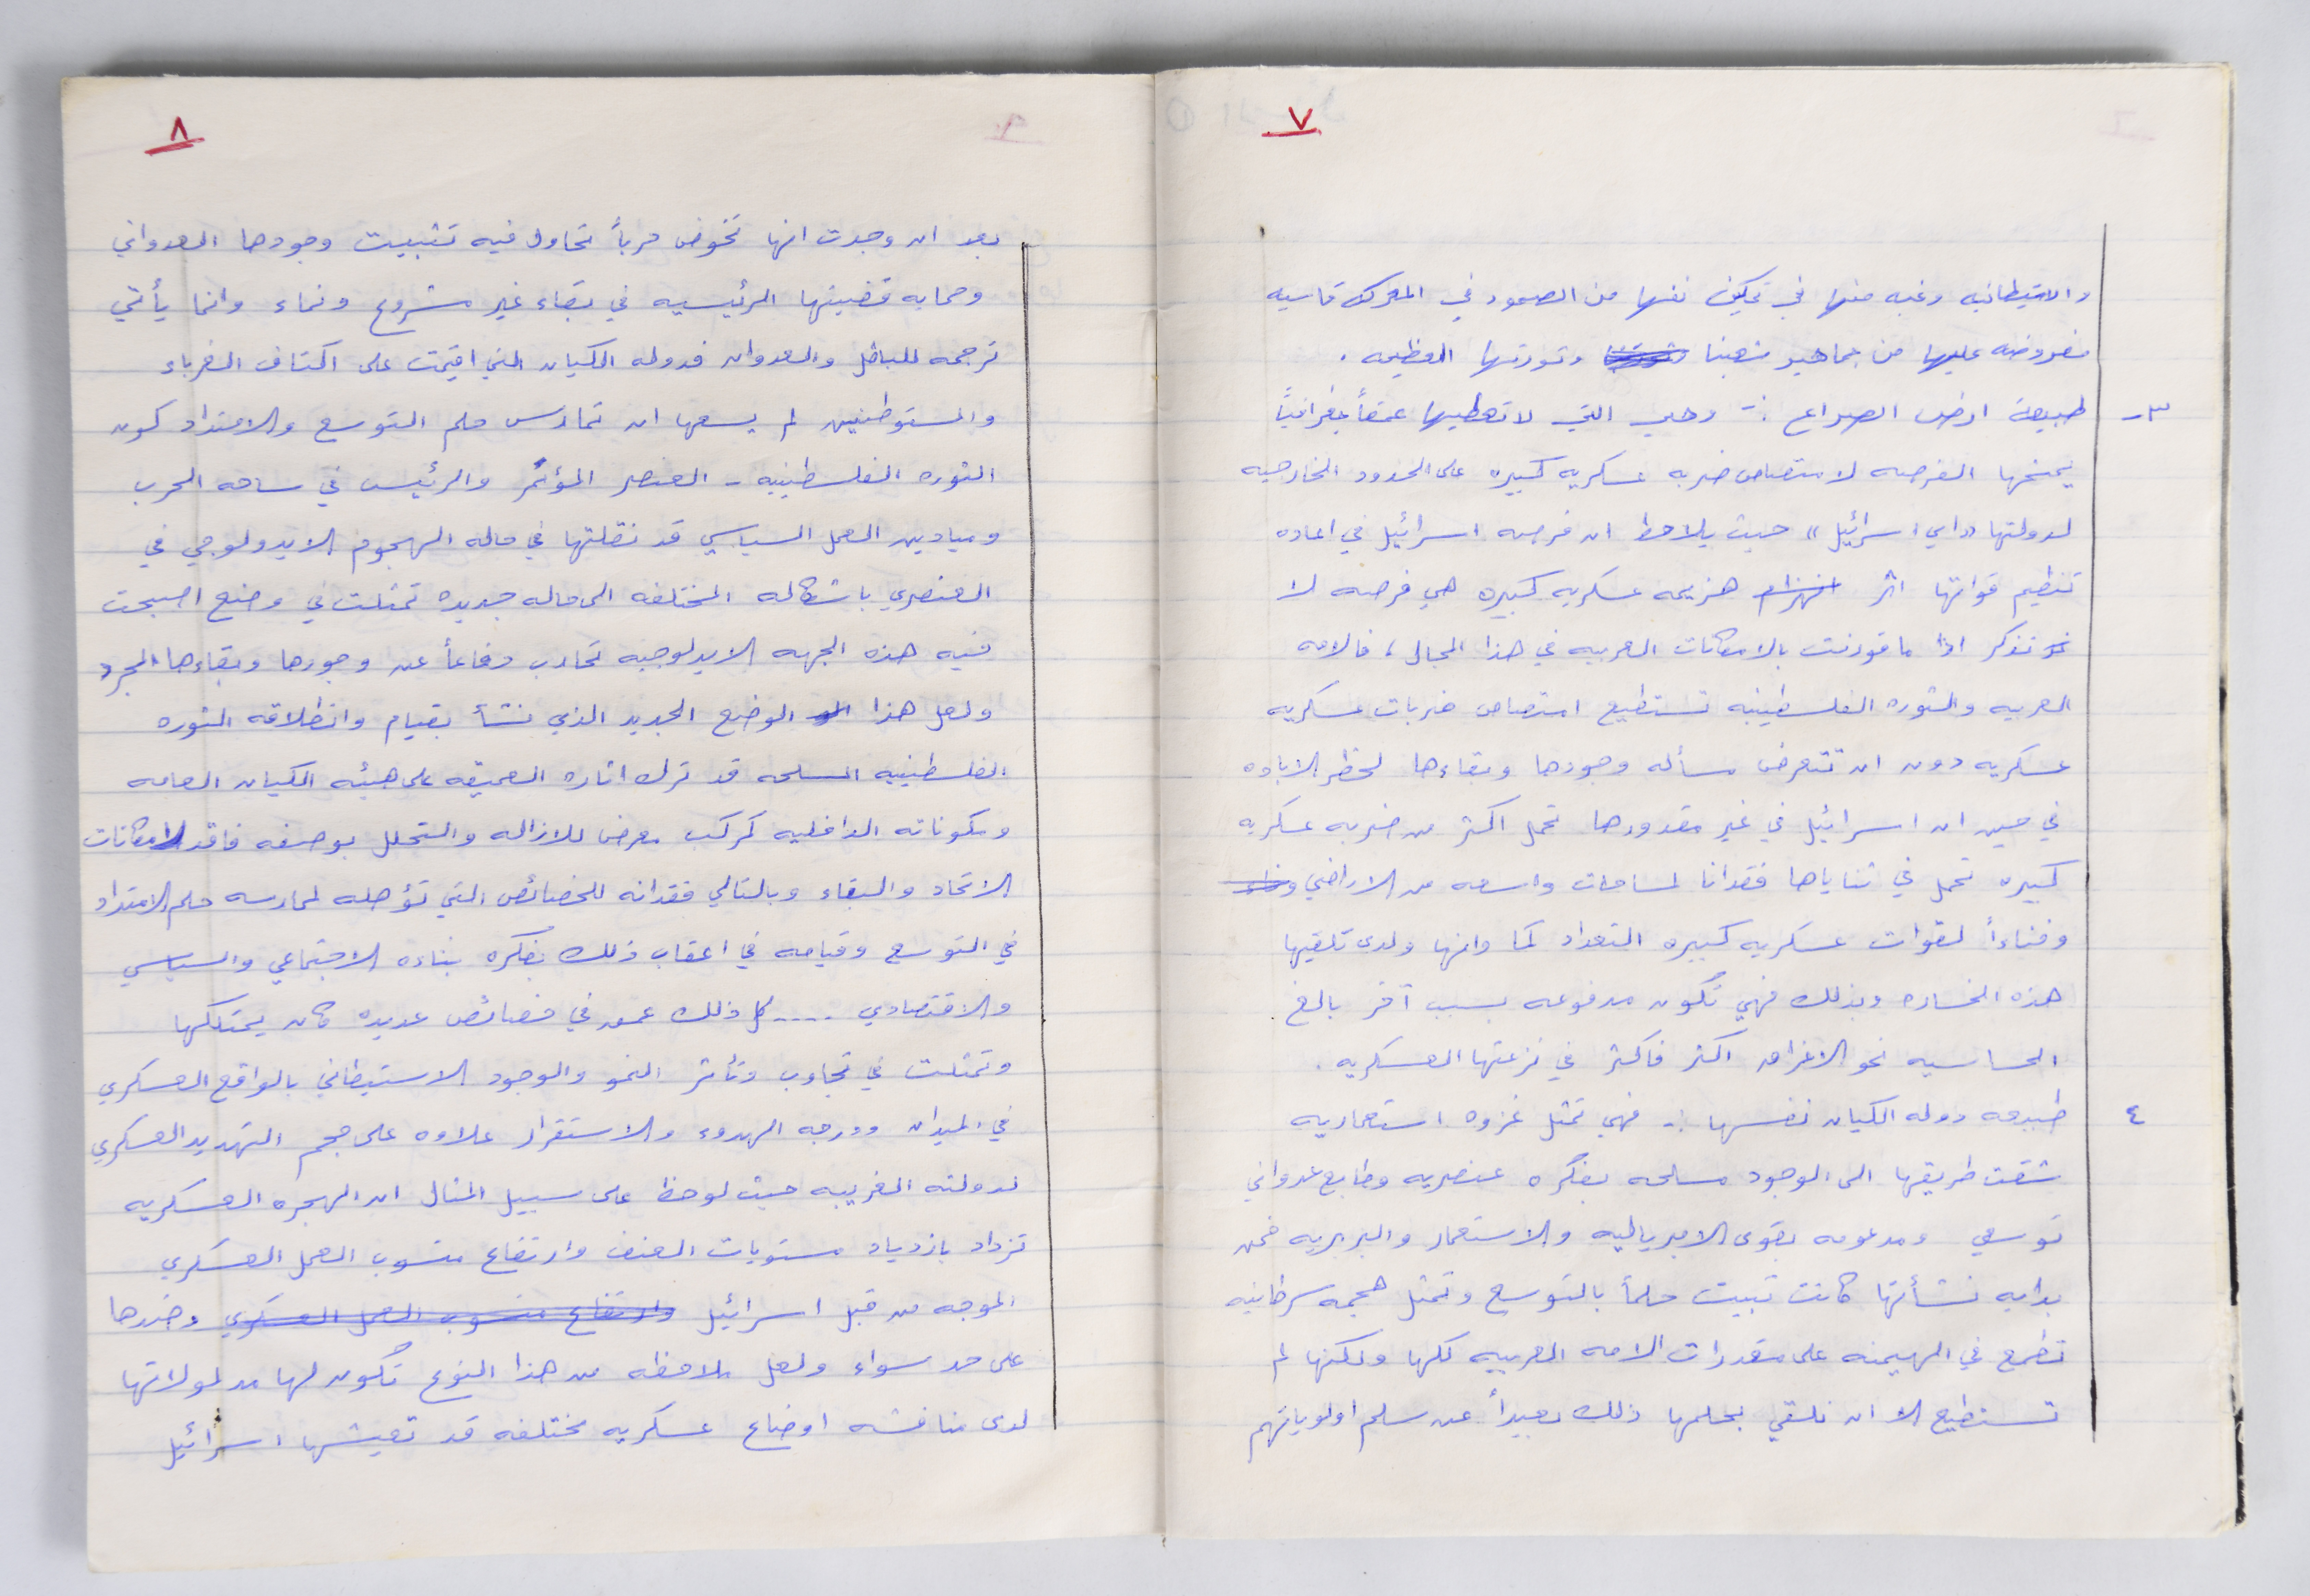 ٧
والاستيطانيه رغبه منها في تمكين نفسها من الصمود في المعركه قاسيه
مفروضه عليها من جماهير شعبنا وثورتها العظيمه .
٣- طبيعة ارض الصراع :- وهي التي لا تعطيها عمقاً جغرافياً
يمنحها الفرصه لامتصاص ضربه عسكريه كبيره على الحدود الخارجيه
لدولتها "اي اسرائيل" حيث يلاحظ ان فرصه اسرائيل في اعاده
تنظيم قواتها اثر انهزام هزيمه عسكريه كبيره هي فرصه لا
تذكر اذا ما قورنت بالامكانات العربيه في هذا المجال ، فالامه
العربيه والثوره الفلسطينيه تستطيع امتصاص ضربات عسكريه
عسكريه دون ان تتعرض مسأله وجودها وبقاءها لخطر الاباده
في حين ان اسرائيل في غير مقدورها تحمل اكثر من ضربه عسكريه
كبيره تحمل في ثناياها فقدانا لمساحات واسعه من الاراضي
وفناءاً لقوات عسكريه كبيره التعداد كما وانها ولدى تلقيها
هذه الخساره وبذلك فهي تكون مدفوعه بسبب آخر بالغ
الحساسيه نحو الاغراق اكثر فاكثر في نزعتها العسكريه .
٤ طبيعه دوله الكيان نفسها :- فهي تمثل غزوه استعماريه
شقت طريقها الى الوجود مسلحه بفكره عنصريه وطابع عدواني
توسعي ومدعومه بقوى الامبرياليه والاستعمار والبربريه فمن
بدايه نشأتها كانت تبيت حلماً بالتوسع وتمثل هجمه سرطانيه
تطمع في الهيمنه على مقدرات الامه العربيه كلها ولكنها لم
تستطيع الا ان تلقي بحلمها ذلك بعيداً عن سلم اولوياتهم
٨
بعد ان وجدت انها تخوض حرباً تحاول فيه تثبيت وجودها العدواني
وحمايه قضيتها الرئيسيه في بقاء غير مشروع ونماء وانما يأتي
ترجمه للباطل والعدوان فدوله الكيان التي اقيمت على اكتاف الغرباء
والمستوطنين لم يسعها ان تمارس حلم التوسع والامتداد كون
الثوره الفلسطينيه - العنصر المؤثر والرئيس في ساحه الحرب
وميادين العمل السياسي قد نقلتها في حاله الهجوم الايدولوجي في
العنصري باشكاله المختلفه الى حاله جديده تمثلت في وضع اصبحت
فيه هذه الجهه الايدلوجيه تحارب دفاعاً عن وجودها وبقاءها المجرد
ولعل هذا الوضع الجديد الذي نشأ بقيام وانطلاقه الثوره
الفلسطينيه المسلحه قد ترك اثاره العميقه على هيئه الكيان العامه
ومكوناته الداخليه كمركب معرض للازاله والتحلل بوصفه فاقد لامكانات
الاتحاد والبقاء وبالتالي فقدانه للخصائص التي تؤهله لممارسه حلم الامتداد
في التوسع وقيامه في اعقاب ذلك بفكره بناءه الاجتماعي والسياسي
والاقتصادي .... كل ذلك عمق في خصائص عديده كان يمتلكها
وتمثلت في تجاوب وتأثر النمو والوجود الاستيطاني بالواقع العسكري
في الميدان ودرجه الهدوء والاستقرار علاوه على حجم التهديد العسكري
لدولته الغريبه حيث لوحظ على سبيل المثال ان الهجره العسكريه
تزداد بازدياد مستويات العنف وارتفاع منسوب العمل العسكري
الموجه من قبل اسرائيل وارتفاع منسوب العمل العسكري وضدها
على حد سواء ولعل ملاحظه من هذا النوع تكون لها مدلولاتها
لدى مناقشه اوضاع عسكريه مختلفه قد تعيشها اسرائيل